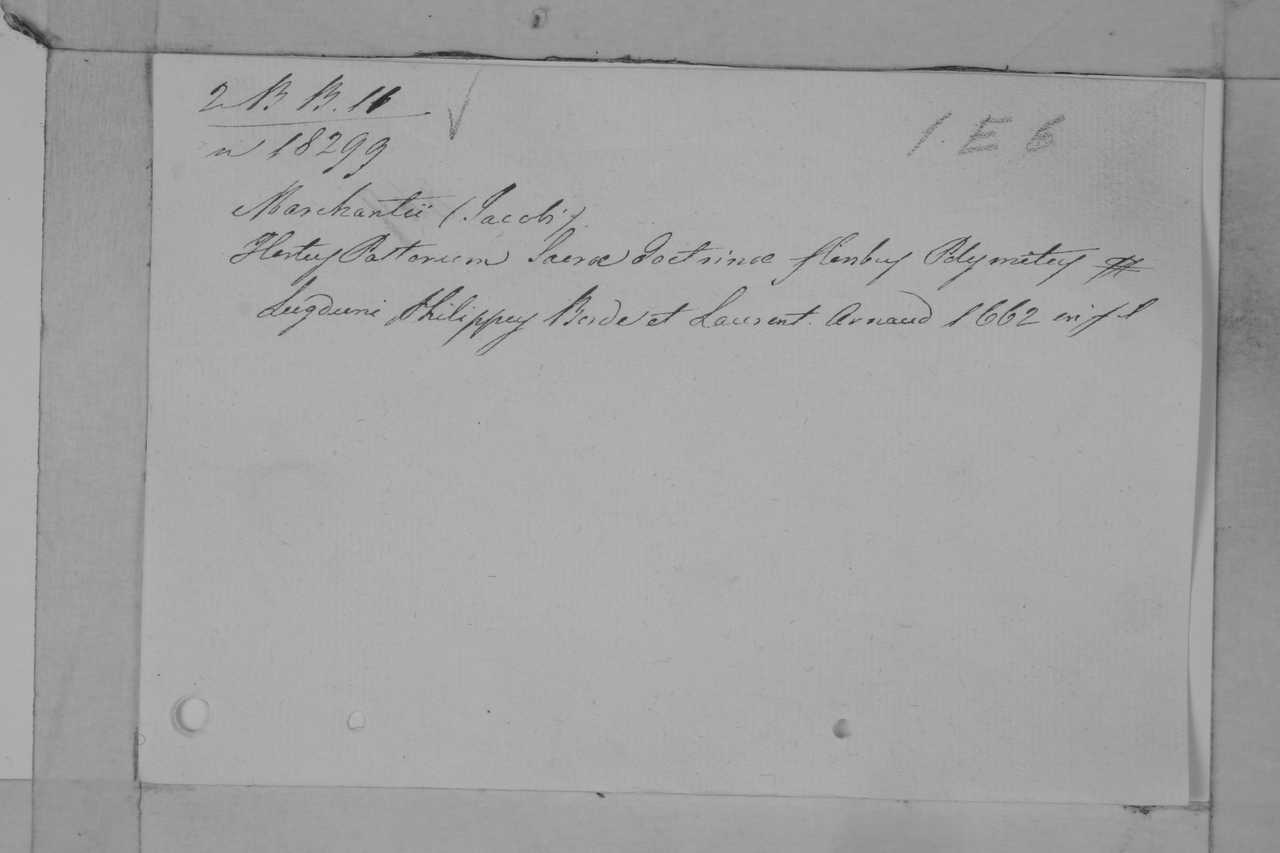 2 B B. 11
n 18299
1. E 6
Marchantii (Jacobi)
Hortus Pastorum Sacræ doctrinæ floribus Polymitus
Lugduni Philippus Borde et Laurent. Arnaud 1662 in fol